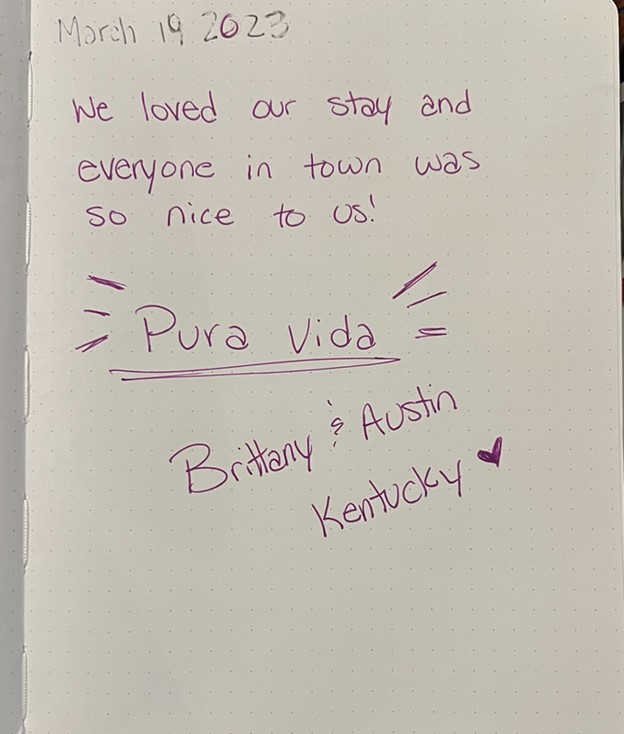 March 19 2023
We loved our stay and
everyone in town was
so nice to us!
Pura Vida
Brittany & Austin
Kentucky ♥